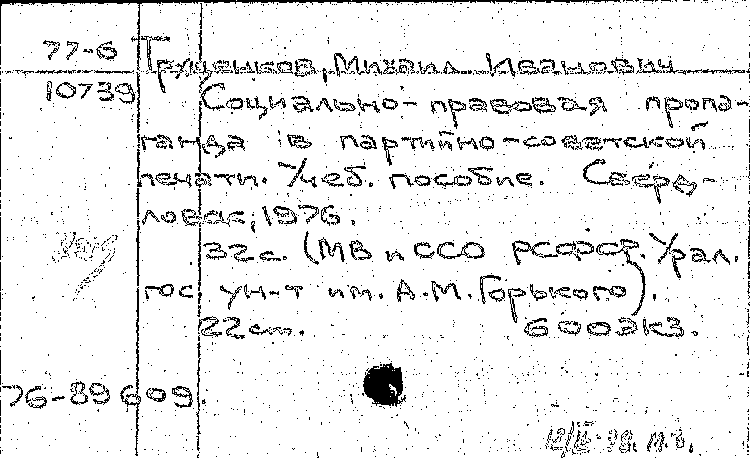 77-6 Трушенков, Михаил Иванович
10739 Социально-правовая пропа-
ганда в партийно-советской
печати. Учеб. пособие. Сверд-
ловск, 1976.
32 с. (МВ и ССО РСФСР. Урал.
гос ун-т им. А.М. Горького).
22 см. 600 экз.
76-89609.